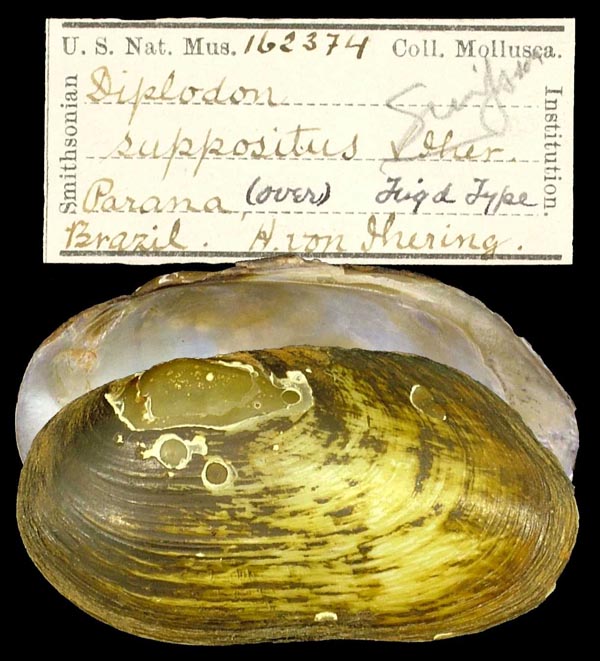 U. S. Nat. Mus. 162374 Coll. Mollusca.
Smithsonian
Institution.
Diplodon
Simpson
suppositus Iher.
Parana, (over) Fig'd Type
Brazil. H. von Ihering.